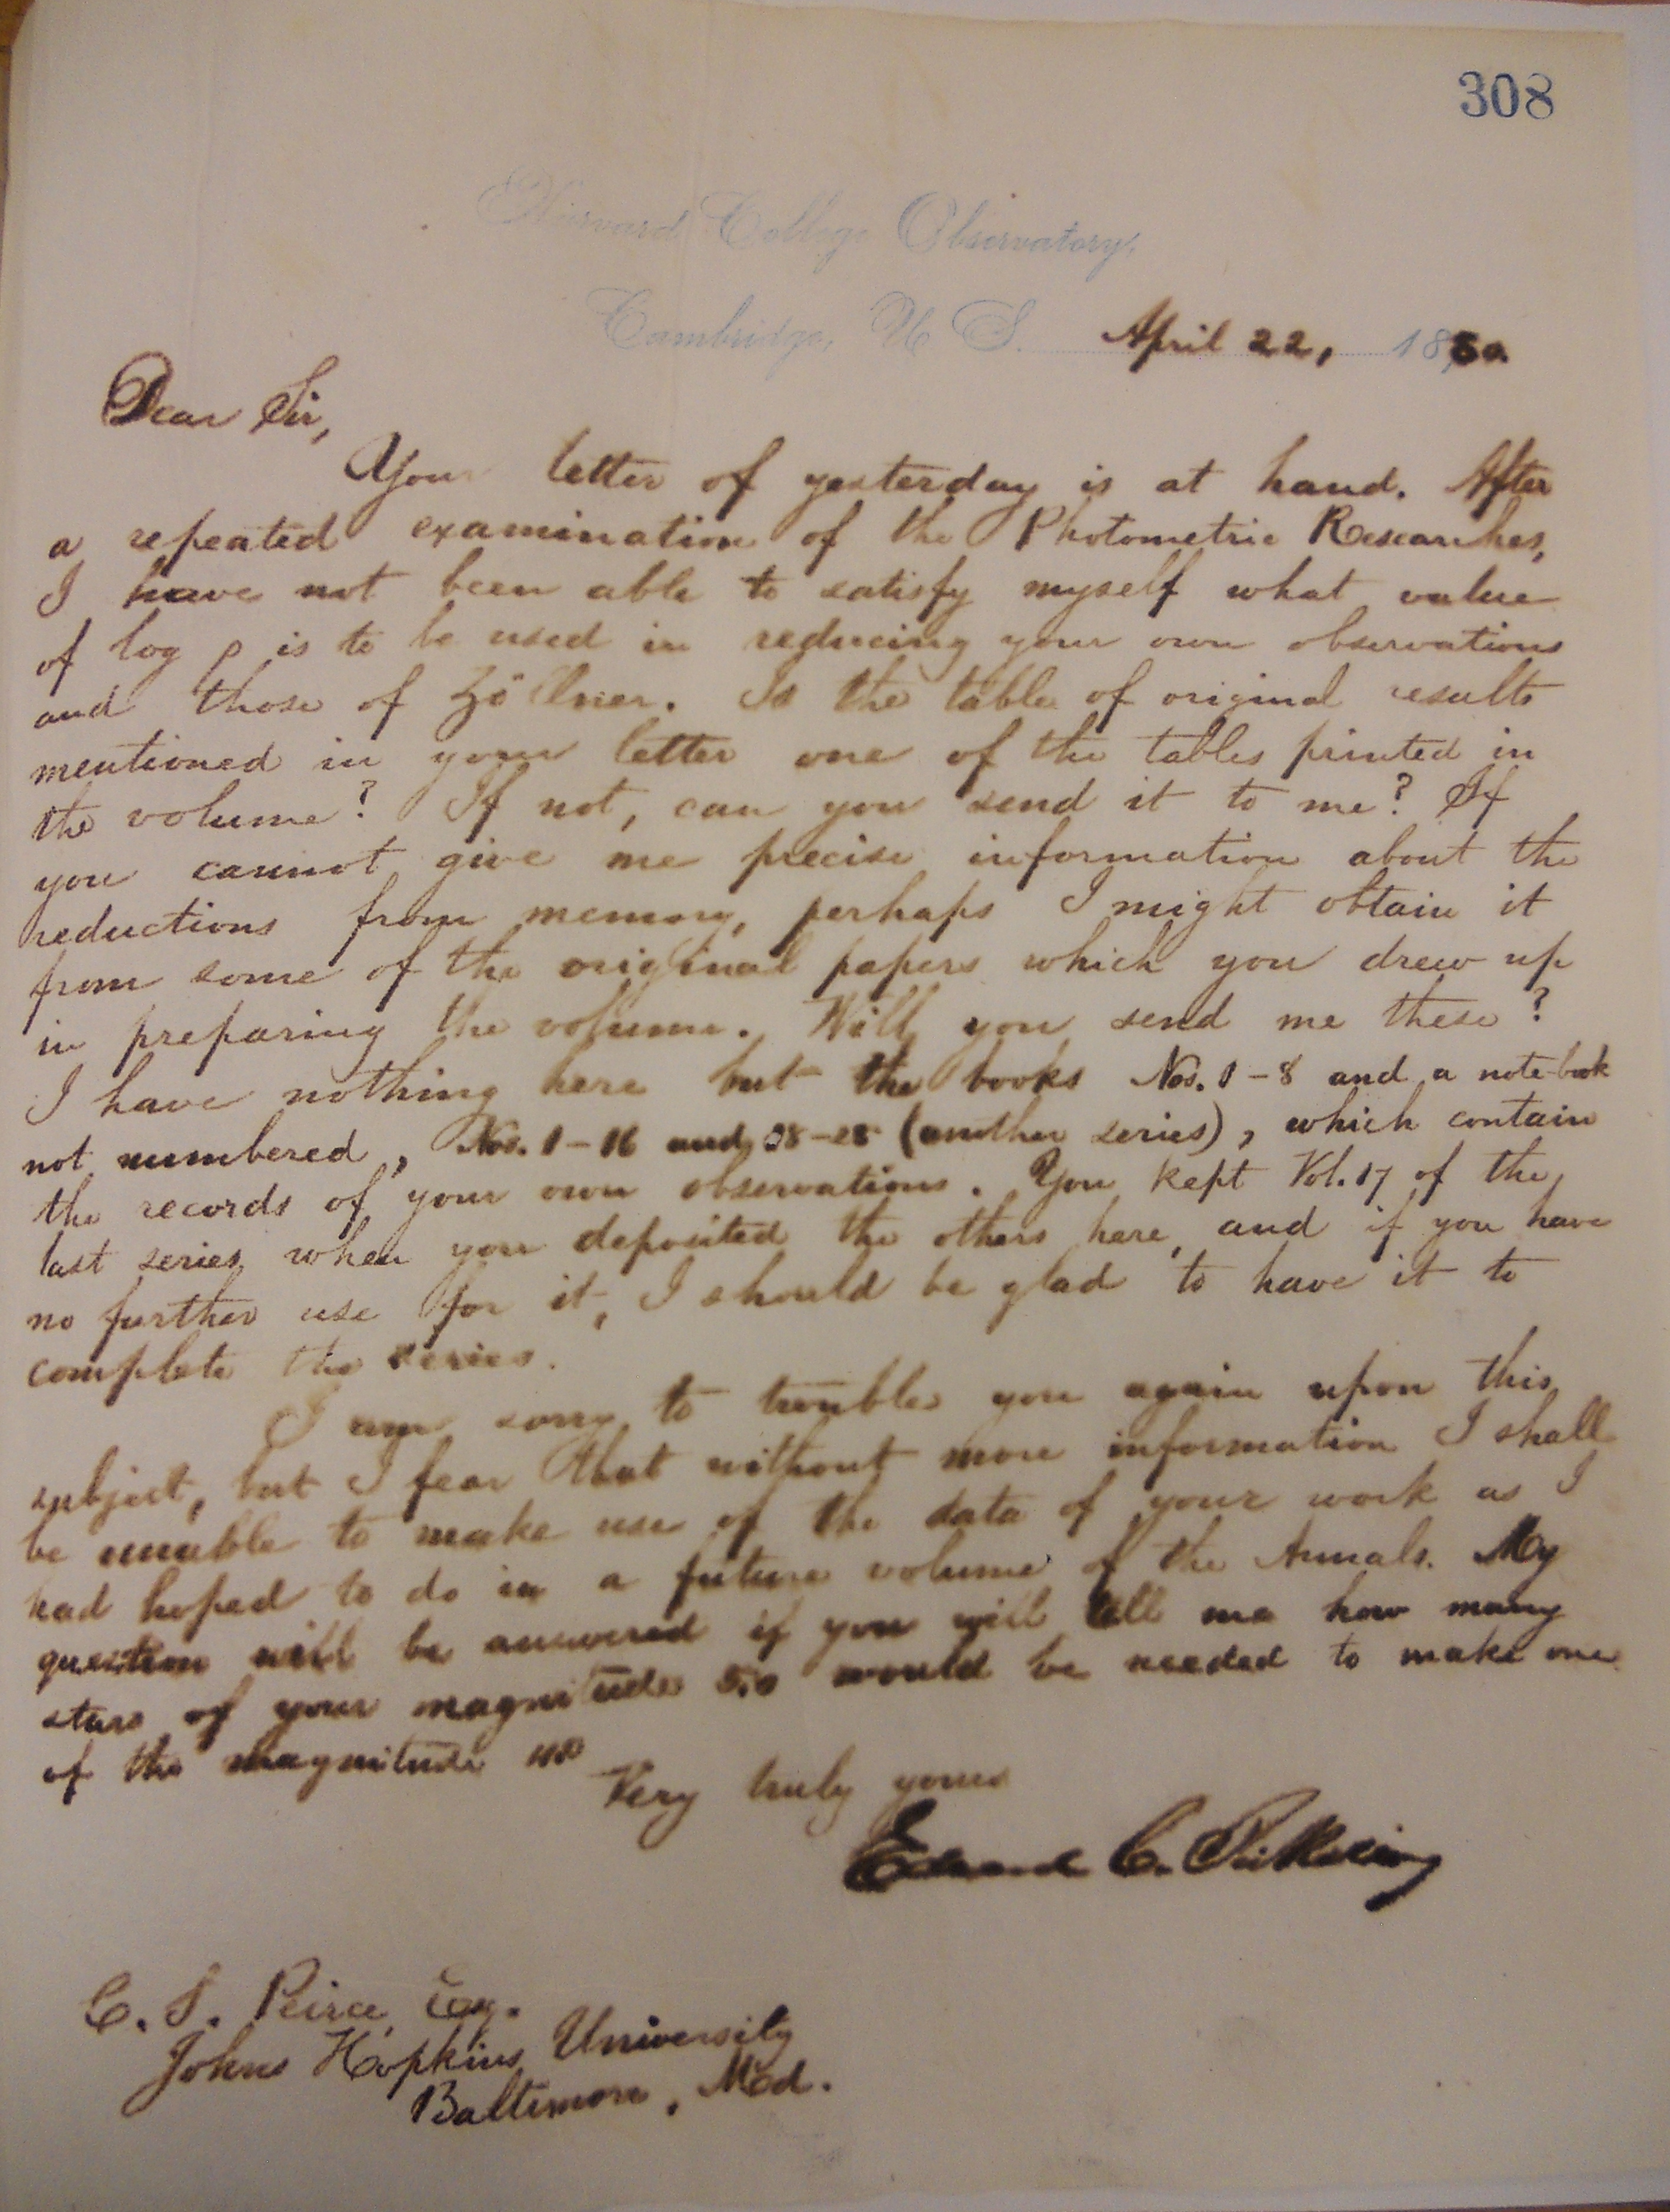 308
Harvard College Observatory,
Cambridge, U. S. April 22, 1880.
Dear Sir,
Your letter of yesterday is at hand. After
a repeated examination of the Photometric Researches,
I have not been able to satisfy myself what value
of log ρ is to be used in reducing your own observations
and those of Zöllner. Is the table of original results
mentioned in your letter one of the tables printed in
the volume? If not, can you send it to me? If
you cannot give me precise information about the
reductions from memory, perhaps I might obtain it
from some of the original papers which you drew up
in preparing the volume. Will you send me these?
I have nothing here but the books Nos. 1-8 and a note-book
not numbered, Nos. 1-16 and 18-28 (another series), which contain
the records of your own observations. You kept Vol. 17 of the
last series when you deposited the others here, and if you have
no further use for it, I should be glad to have it to
complete the series.
I am sorry to trouble you again upon this
subject, but I fear that without more information I shall
be unable to make use of the data of your work as I
had hoped to do in a future volume of the Annals. My
question will be answered if you will tell me how many
stars of your magnitude 5.0 would be needed to make one
of the magnitude
Very truly yours
Edward C. Pickering
C. S. Peirce, Esq.
Johns Hopkins University
Baltimore, Md.